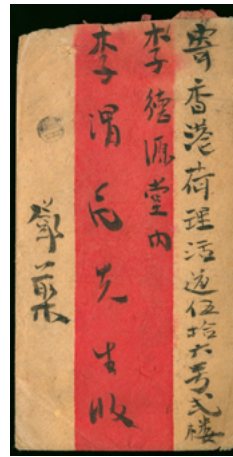 寄香港荷理活道伍拾六号弍楼
李德源堂内
李渭民先生收
鄧䓪